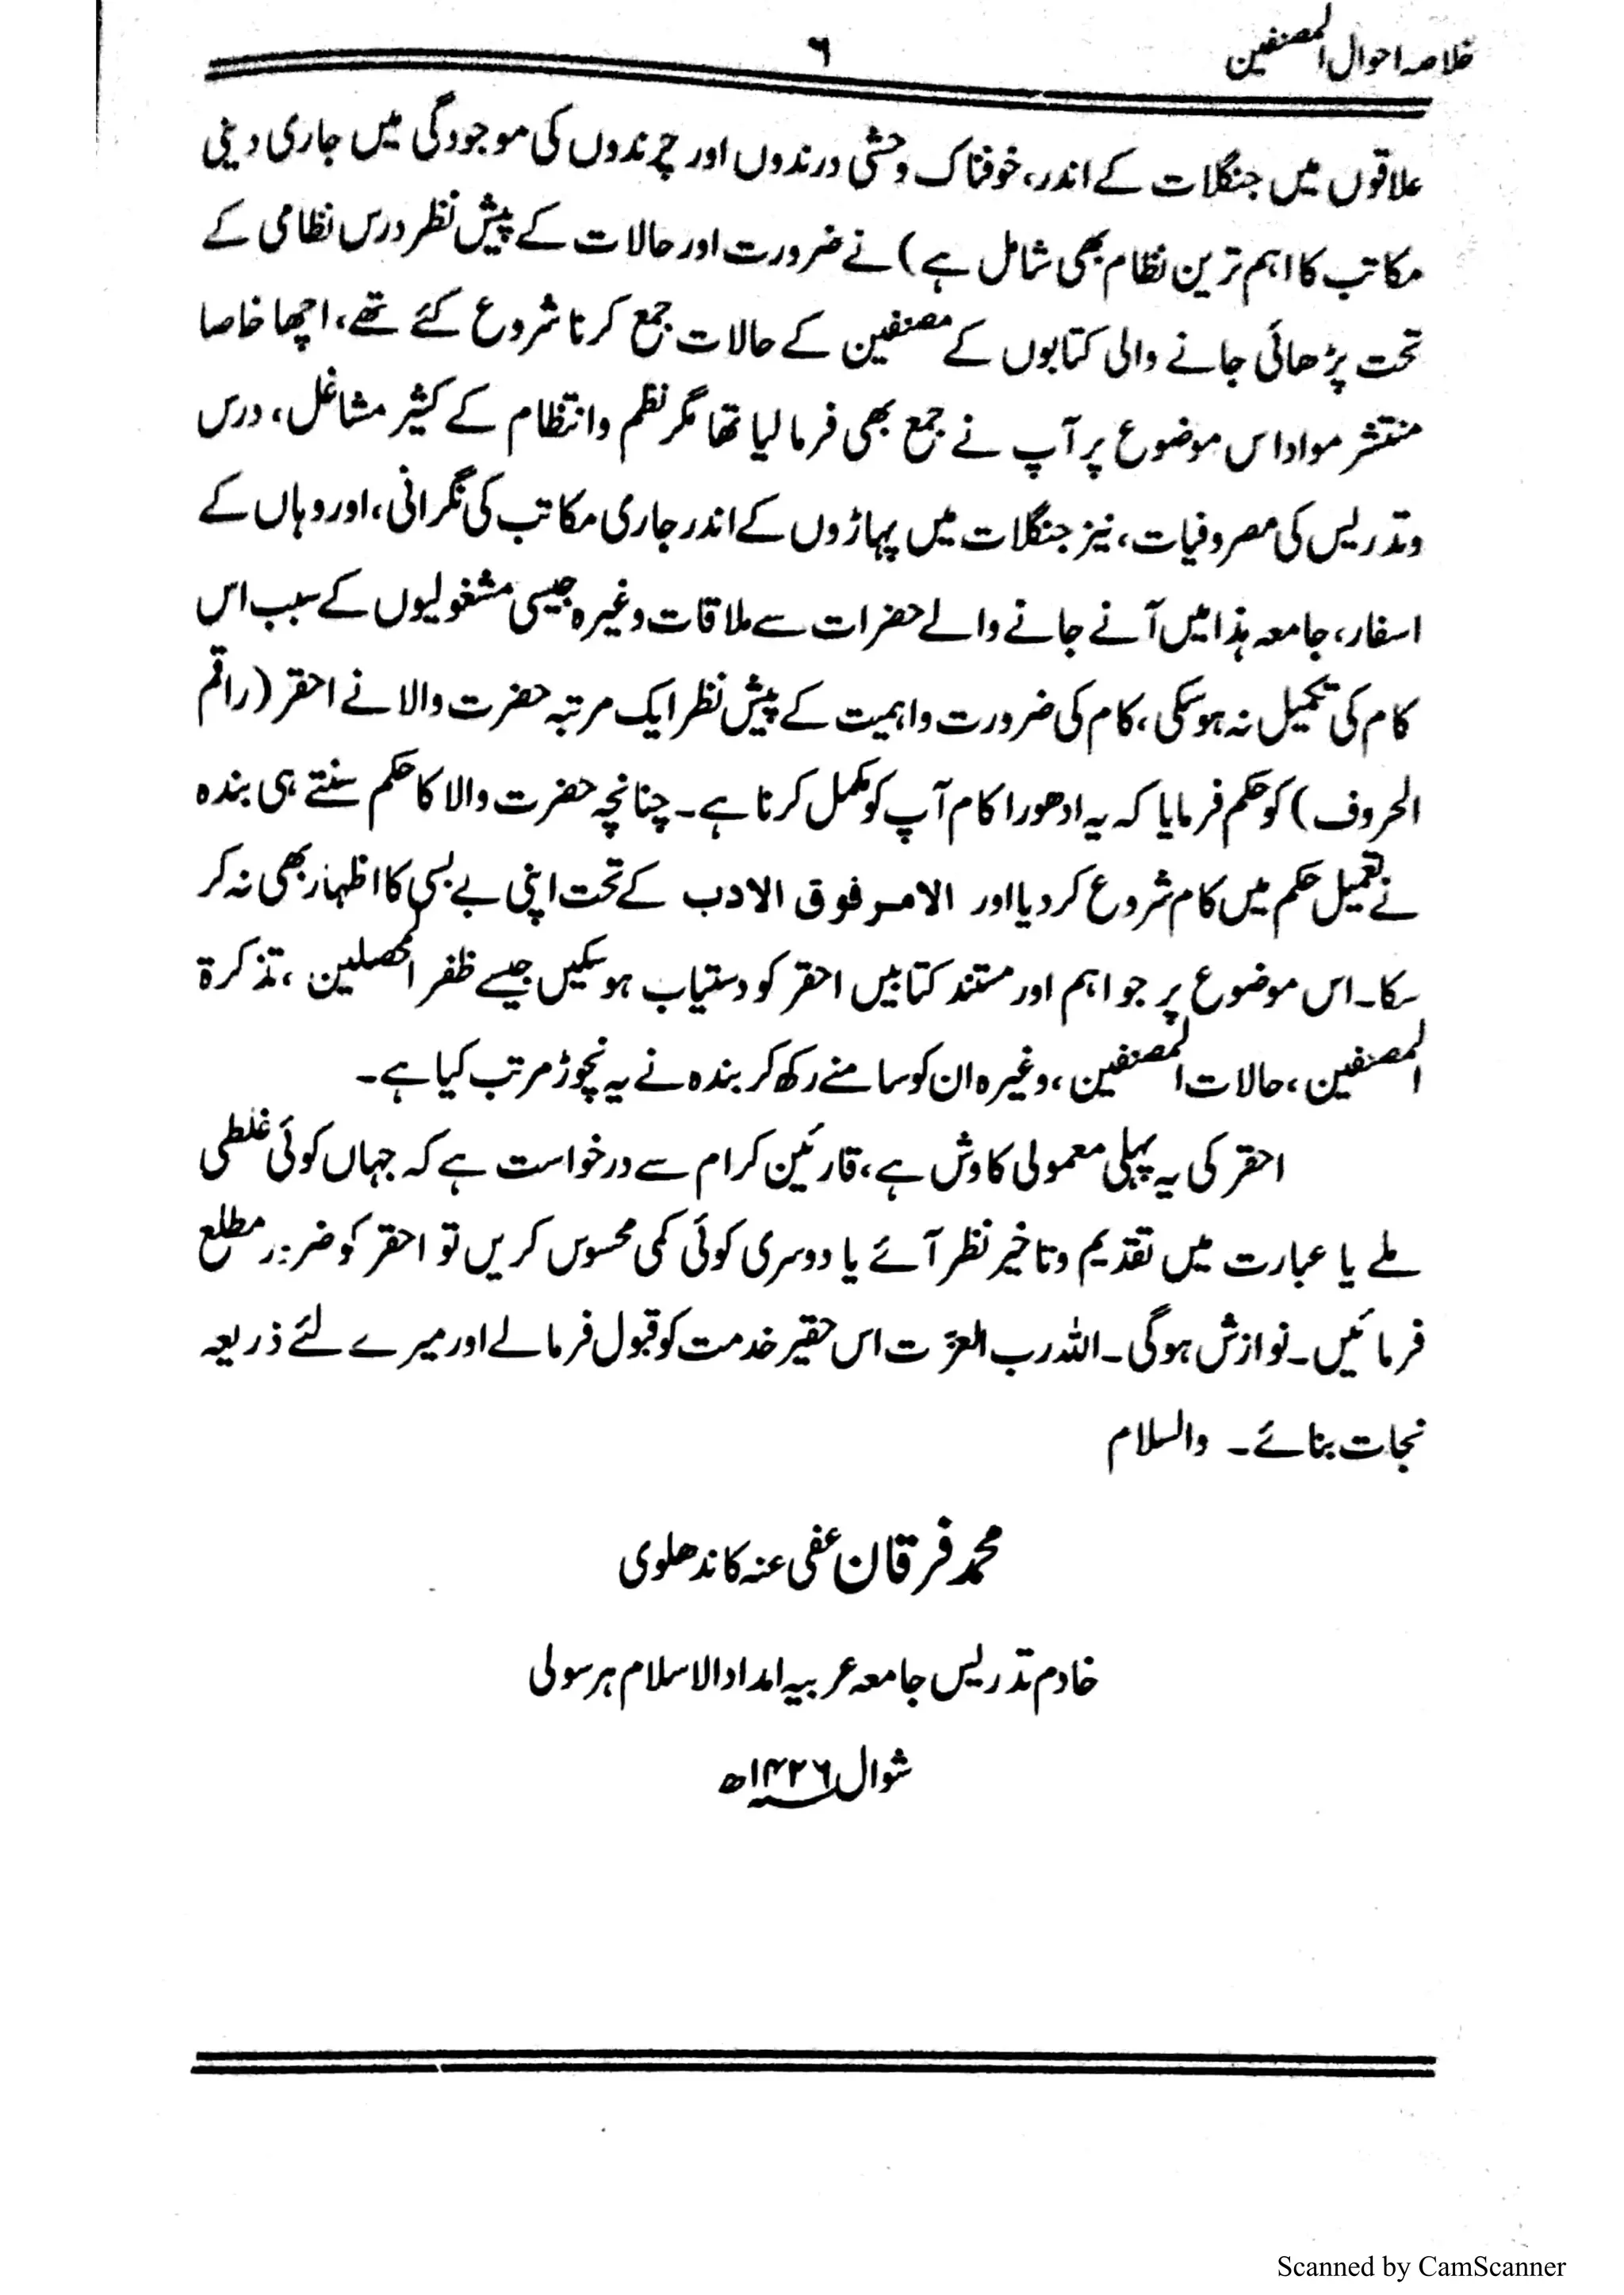 خلاصہ احوال المصنفین
٦
علاقوں میں جنگلات کے اندر، خوفناک وحشی درندوں اور چرندوں کی موجودگی میں جاری دینی
مکاتب کا اہم ترین نظام بھی شامل ہے) نے ضرورت اور حالات کے پیش نظر درس نظامی کے
تحت پڑھائی جانے والی کتابوں کے مصنفین کے حالات جمع کرنا شروع کئے تھے، اچھا خاصا
منتشر مواد اس موضوع پر آپ نے جمع بھی فرما لیا تھا مگر نظم وانتظام کے کثیر مشاغل، درس
وتدریس کی مصروفیات، نیز جنگلات میں پہاڑوں کے اندر جاری مکاتب کی نگرانی، اور وہاں کے
اسفار، جامعہ ہذا میں آنے جانے والے حضرات سے ملاقات وغیرہ جیسی مشغولیوں کے سبب اس
کام کی تکمیل نہ ہوسکی، کام کی ضرورت واہمیت کے پیش نظر ایک مرتبہ حضرت والا نے احقر (راقم
الحروف) کو حکم فرمایا کہ یہ ادھورا کام آپ کو مکمل کرنا ہے۔ چنانچہ حضرت والا کا حکم سنتے ہی بندہ
نے تعمیل حکم میں کام شروع کردیا اور الامر فوق الادب کے تحت اپنی بے بسی کا اظہار بھی نہ کر
سکا۔ اس موضوع پر جو اہم اور مستند کتابیں احقر کو دستیاب ہوسکیں جیسے ظفر المحصلین، تذکرۃ
المصنفین، حالات المصنفین، وغیرہ ان کو سامنے رکھ کر بندہ نے یہ نچوڑ مرتب کیا ہے۔
احقر کی یہ پہلی معمولی کاوش ہے، قارئین کرام سے درخواست ہے کہ جہاں کوئی غلطی
ملے یا عبارت میں تقدیم وتاخیر نظر آئے یا دوسری کوئی کمی محسوس کریں تو احقر کو ضرور مطلع
فرمائیں۔ نوازش ہوگی۔ اللہ رب العزت اس حقیر خدمت کو قبول فرمالے اور میرے لئے ذریعہ
نجات بنائے۔ والسلام
محمد فرقان عفی عنہ کاندھلوی
خادم تدریس جامعہ عربیہ امداد الاسلام ہرسولی
شوال ۱۴۲۶ھ
Scanned by CamScanner